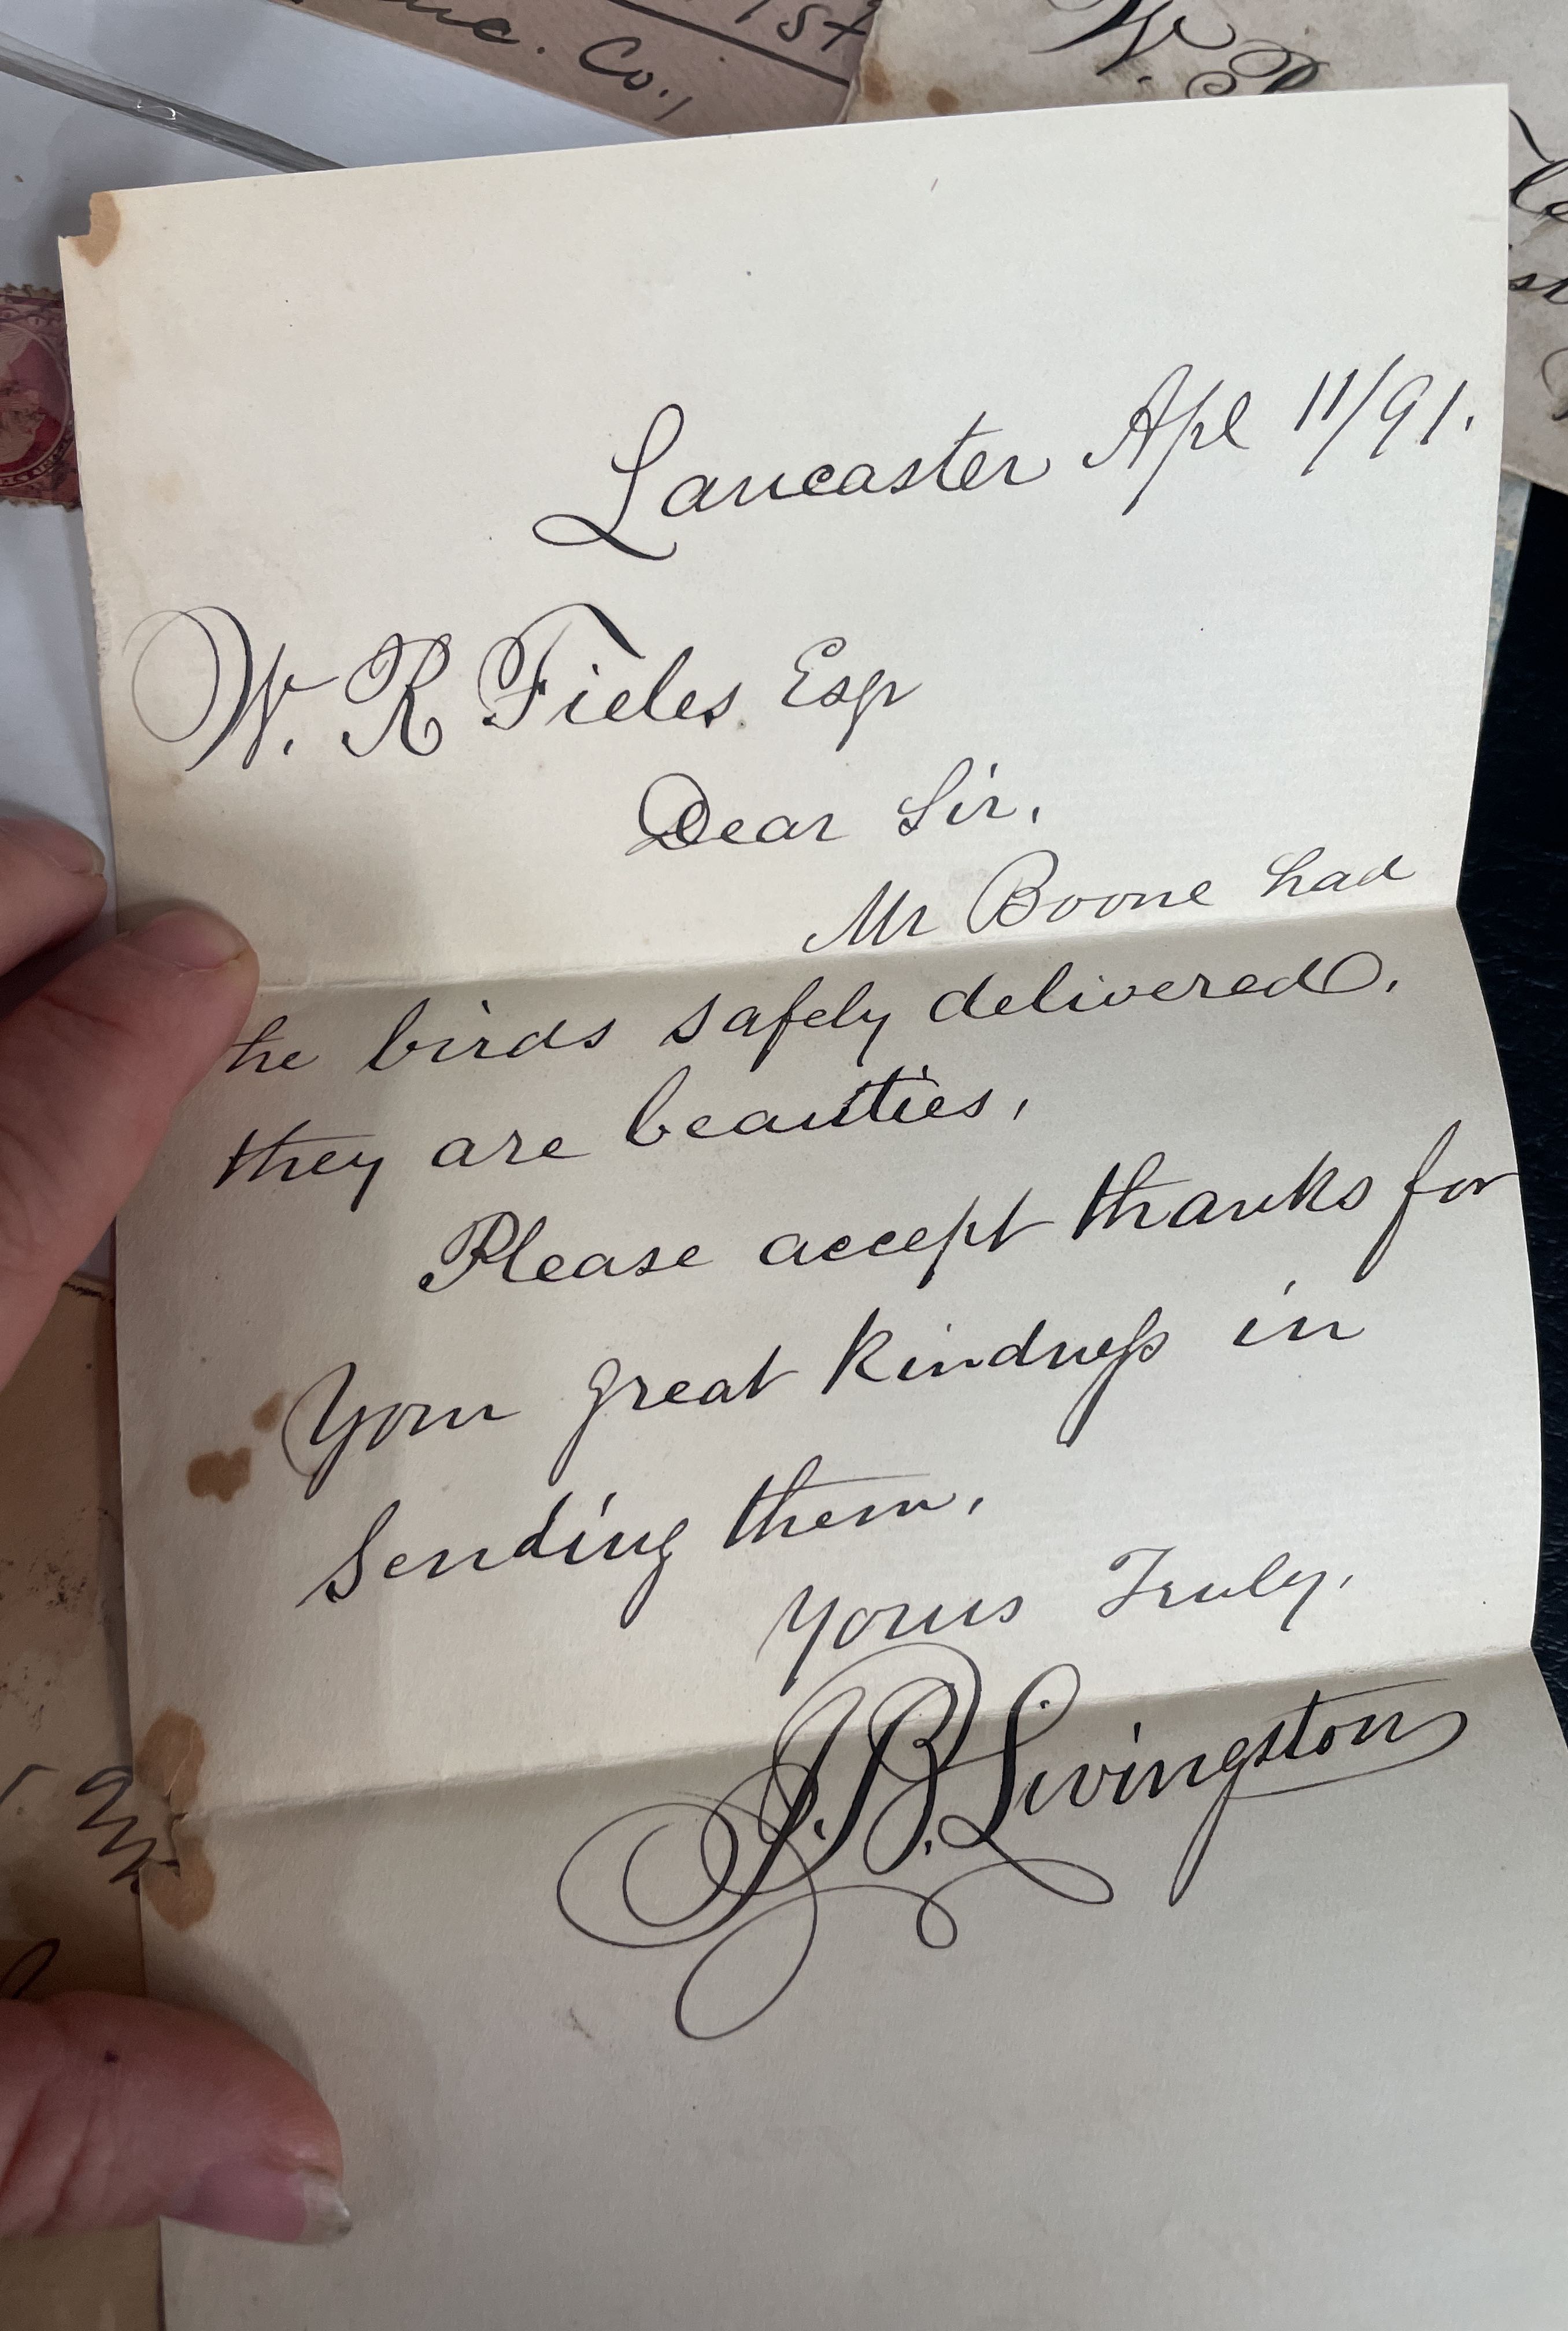 1st
Co.,
W. R
Lancaster Apl 11/91.
W. R Fieles Esq
Dear Sir,
Mr Boone had
the birds safely delivered.
they are beauties,
Please accept thanks for
Your great kindness in
Sending them,
Yours Truly,
J.B. Livingston